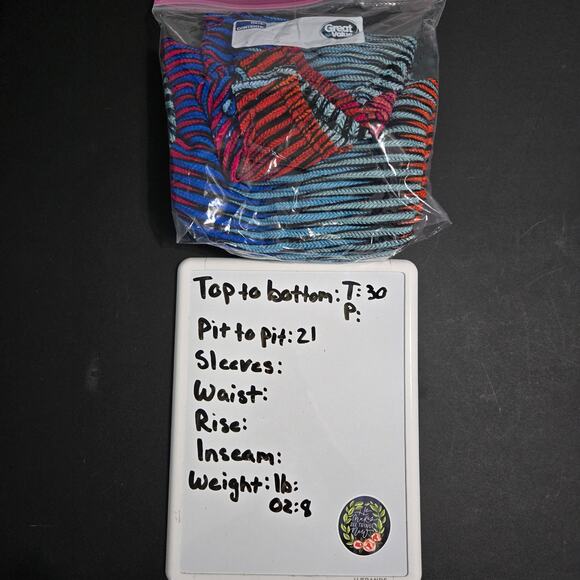 DATE
CONTENTS
Great
Value
Top to bottom: T: 30
P:
Pit to pit: 21
Sleeves:
Waist:
Rise:
Inseam:
Weight: lb:
oz: 8